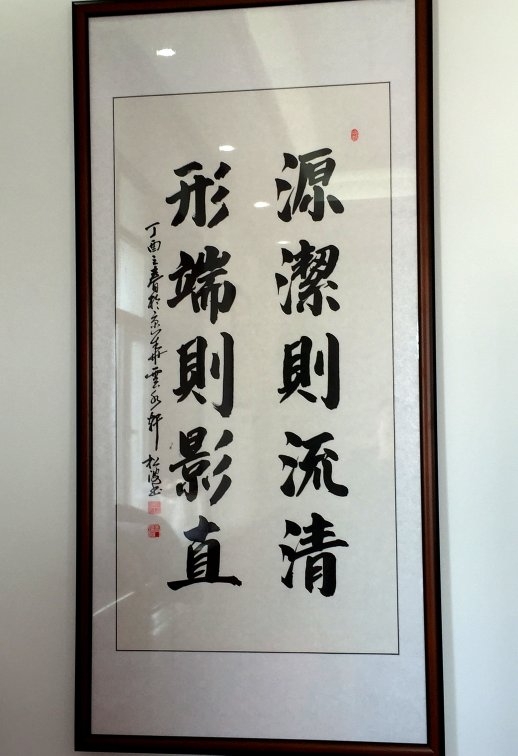 源潔則流清
形端則影直
丁酉立春於京華雲水軒 松波書